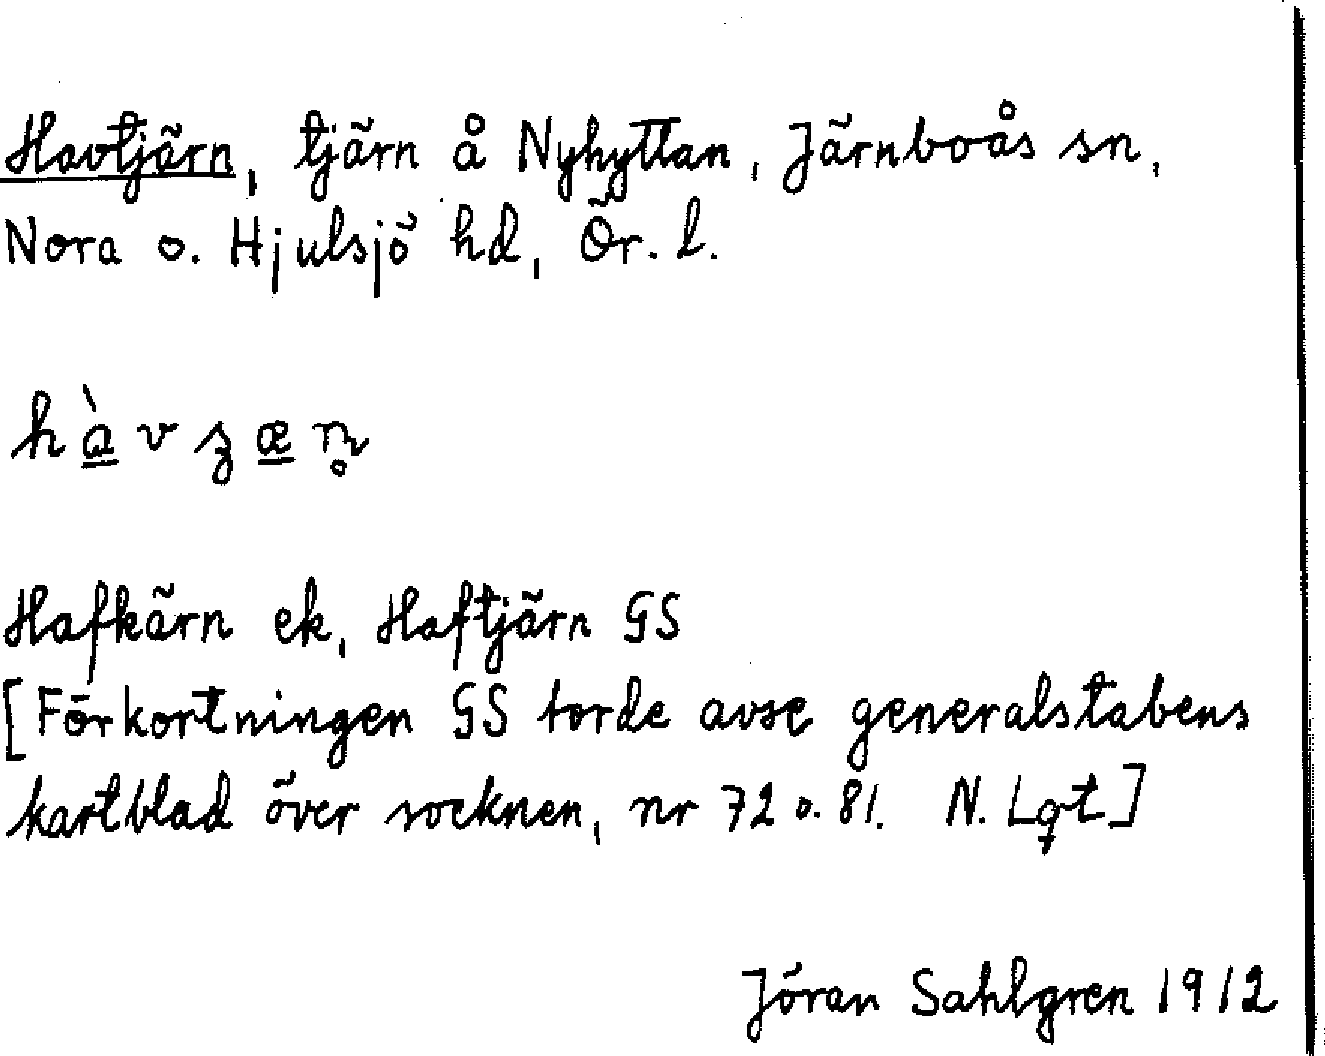 Havtjärn, tjärn å Nyhyttan, Järnboås sn,
Nora o. Hjulsjö hd, Ör. l.
hàvʒæn̥
Hafkärn ek, Haftjärn GS
[Förkortningen GS torde avse generalstabens
kartblad över socknen, nr 72 o. 81. N. Lgt]
Jöran Sahlgren 1912